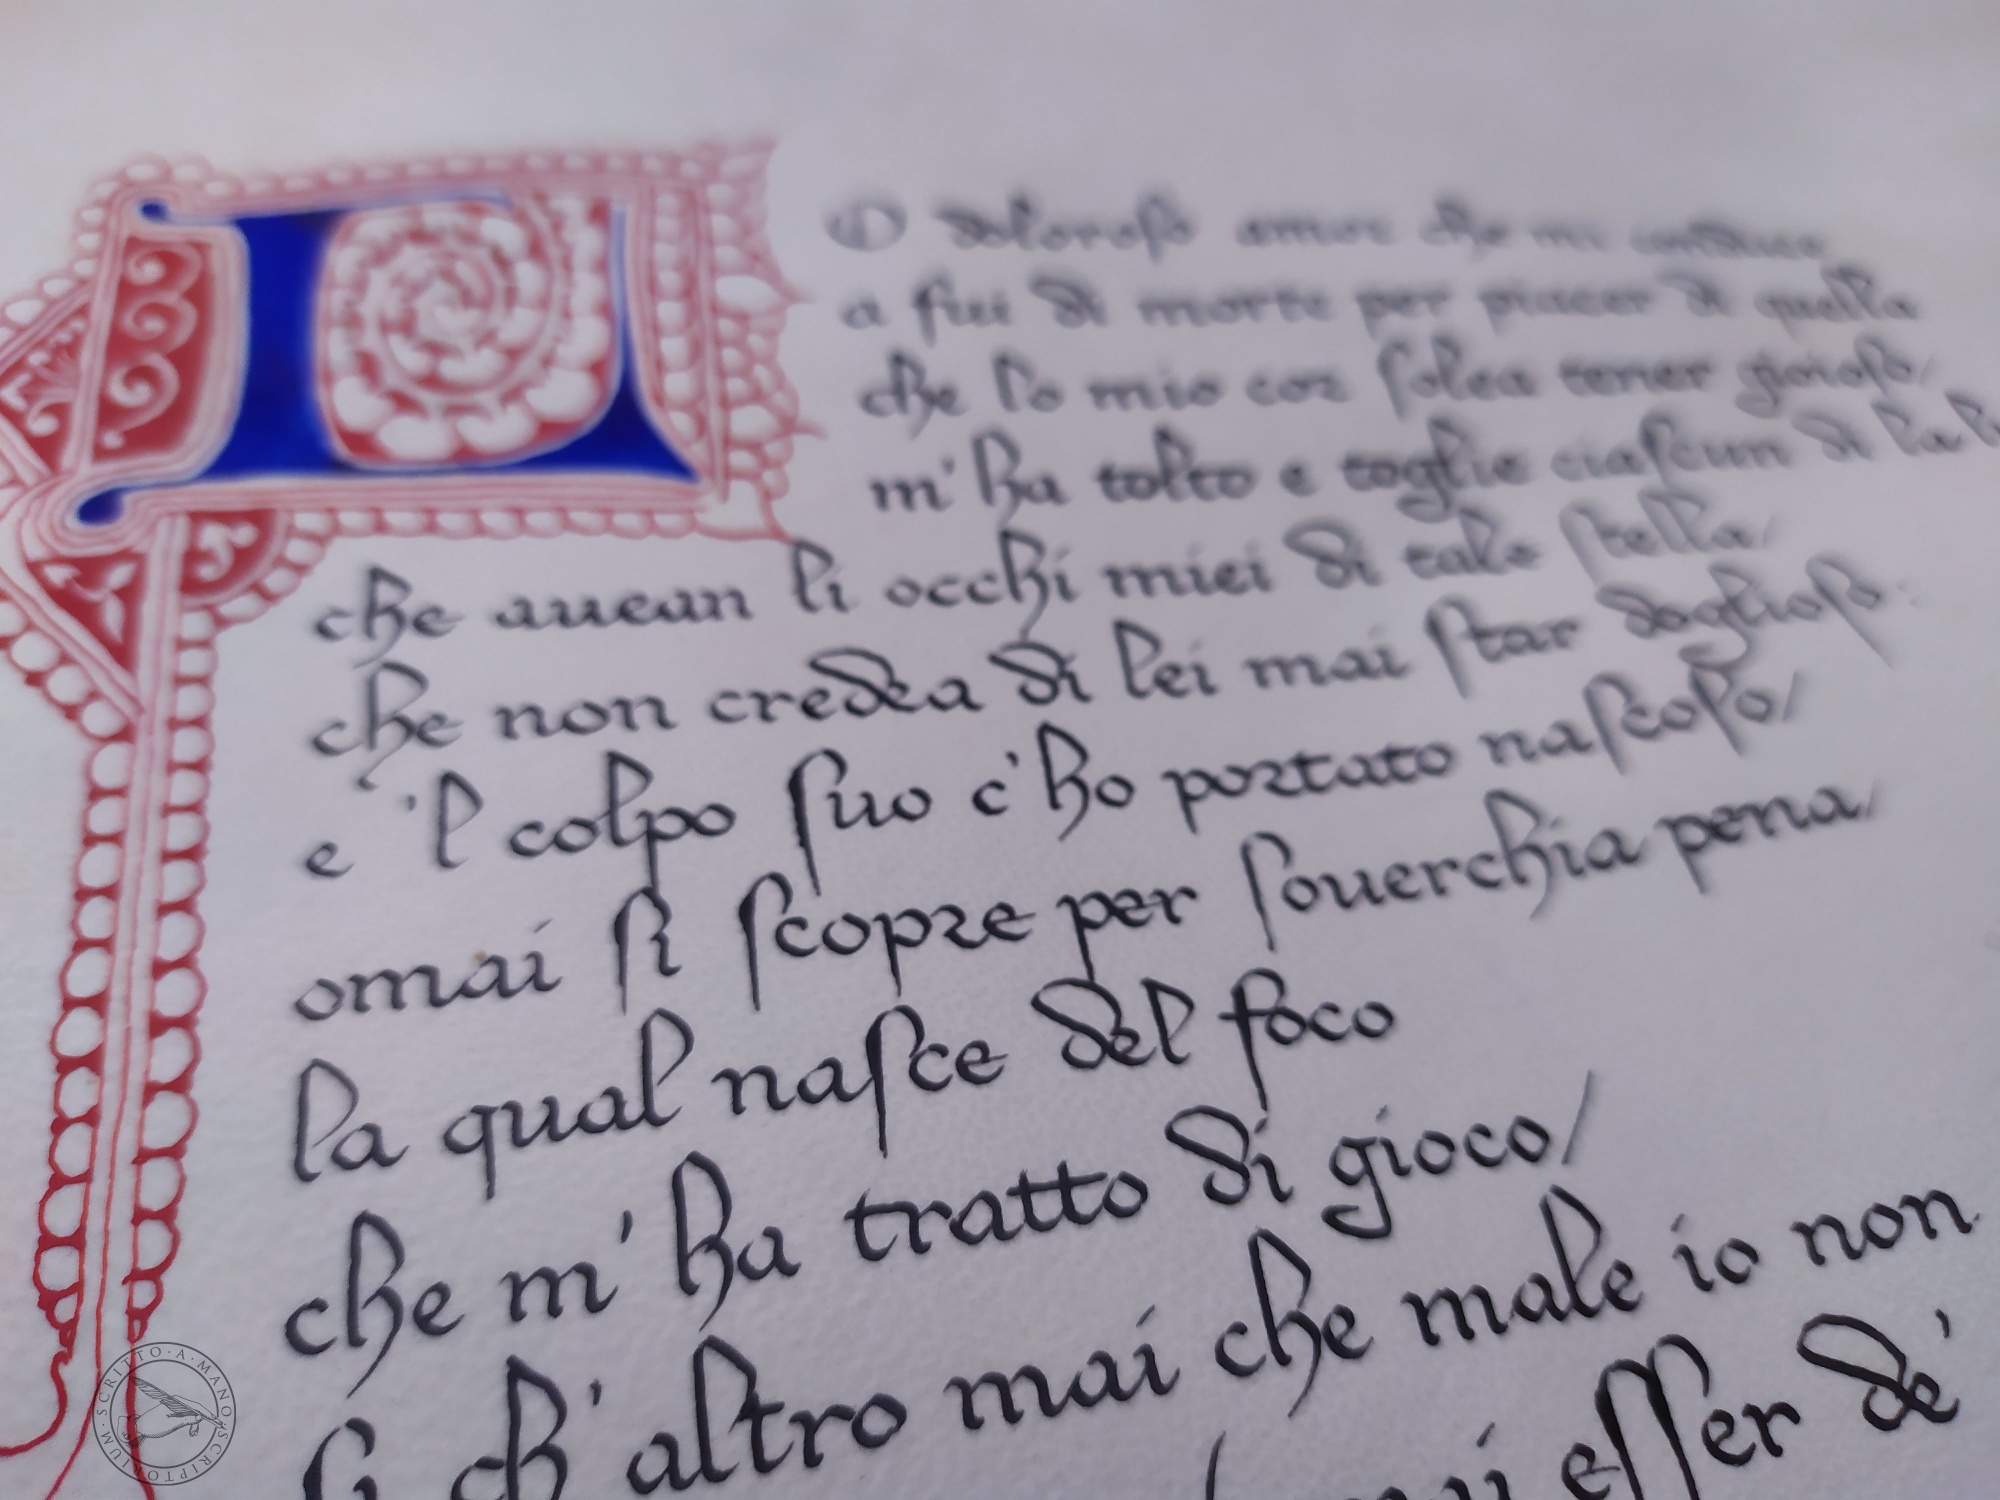 LO doloroso amor che mi conduce
a fin di morte per piacer di quella
che lo mio cor solea tener gioioso/
m'ha tolto e toglie ciascun di la
che auean li occhi miei di tale stella/
che non credea di lei mai star doglioso:
e 'l colpo suo c'ho portato nascoso/
omai si scopre per souerchia pena/
la qual nasce del foco
che m'ha tratto di gioco/
si ch'altro mai che male io non
esser de'
SCRITTO·A·MANO·SCRIPTORIUM·